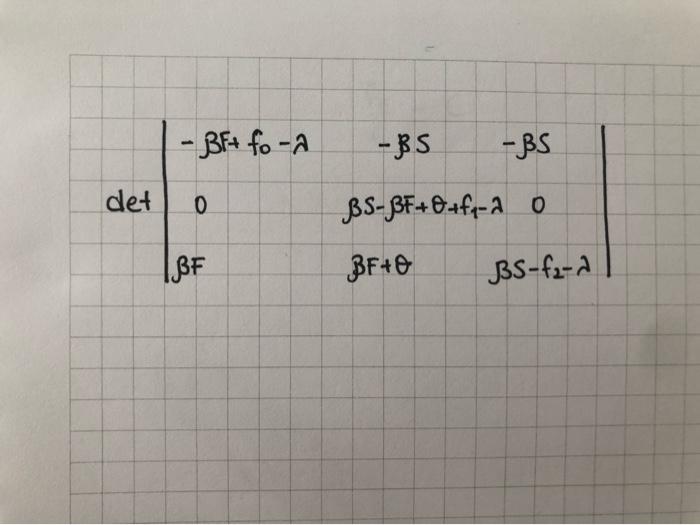 - βF + f₀ - λ -βS -βS
det 0 βS-βF+θ+f₁-λ 0
βF βF+θ βS-f₂-λ